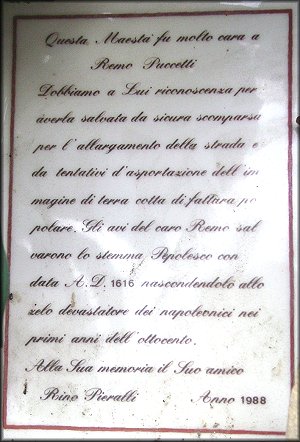 Questa Maestà fu molto cara a
Remo Puccetti
Dobbiamo a Lui riconoscenza per
averla salvata da sicura scomparsa
per l'allargamento della strada e
da tentativi d'asportazione dell'im
magine di terra cotta di fattura po
polare. Gli avi del caro Remo sal
varono lo stemma Pepolesco con
data A.D. 1616 nascondendolo allo
zelo devastatore dei napoleonici nei
primi anni dell'ottocento.
Alla Sua memoria il Suo amico
Rino Pieralli Anno 1988